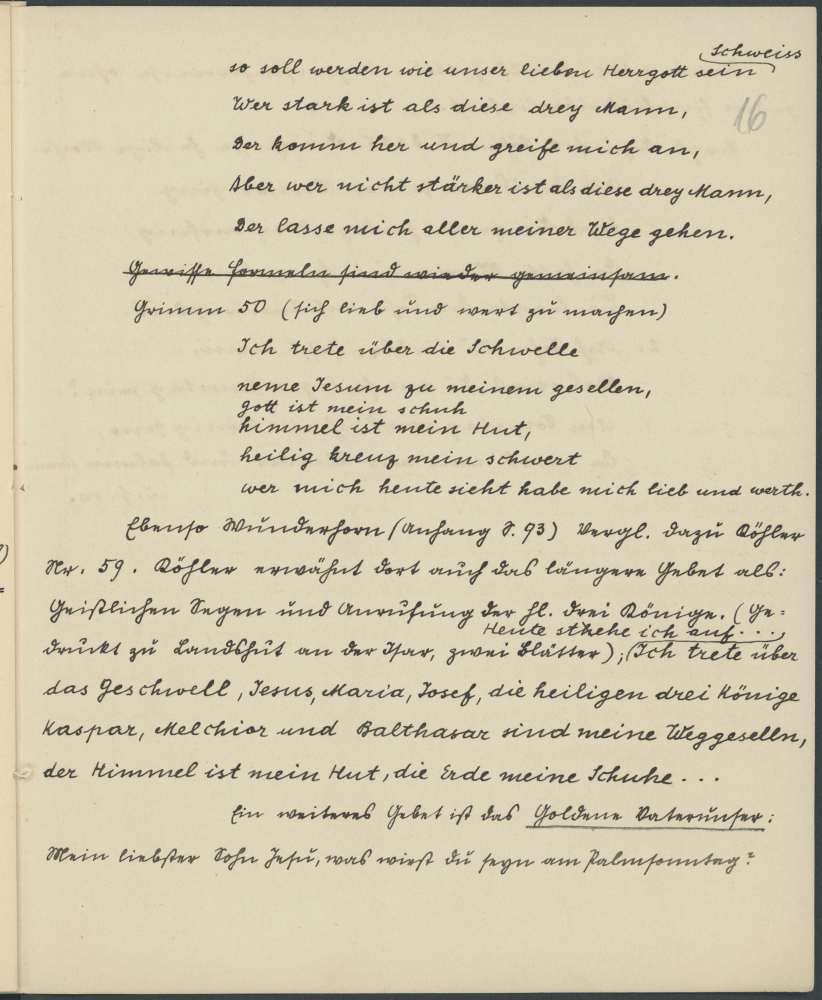 Schweiss
so soll werden wie unser lieben Herrgott sein
Wer stark ist als diese drey Mann,
16
Der komm her und greife mich an,
Aber wer nicht stärker ist als diese drey Mann,
Der lasse mich aller meiner Wege gehen.
Gewisse Formeln sind wieder gemeinsam.
Grimm 50 (sich lieb und wert zu machen)
Ich trete über die Schwelle
neme Jesum zu meinem gesellen,
gott ist mein schuh
himmel ist mein Hut,
heilig kreuz mein schwert
wer mich heute sieht habe mich lieb und werth.
Ebenso Wunderhorn (Anhang S. 93) Vergl. dazu Köhler
Nr. 59. Köhler erwähnt dort auch das längere Gebet als:
Geistlichen Segen und Anrufung der hl. drei Könige. (Ge=
Heute sthehe ich auf....,
druckt zu Landshut an der Isar, zwei Blätter); (Ich trete über
das Geschwell, Jesus, Maria, Josef, die heiligen drei Könige
Kaspar, Melchior und Balthasar sind meine Weggeselln,
der Himmel ist mein Hut, die Erde meine Schuhe...
Ein weiteres Gebet ist das Goldene Vaterunser:
Mein liebster Sohn Jesu, was wirst du seyn am Palmsonntag?